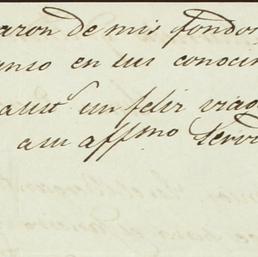 aron de mis fondos
enso en sus conoci
un feliz viag
a su affmo Servi